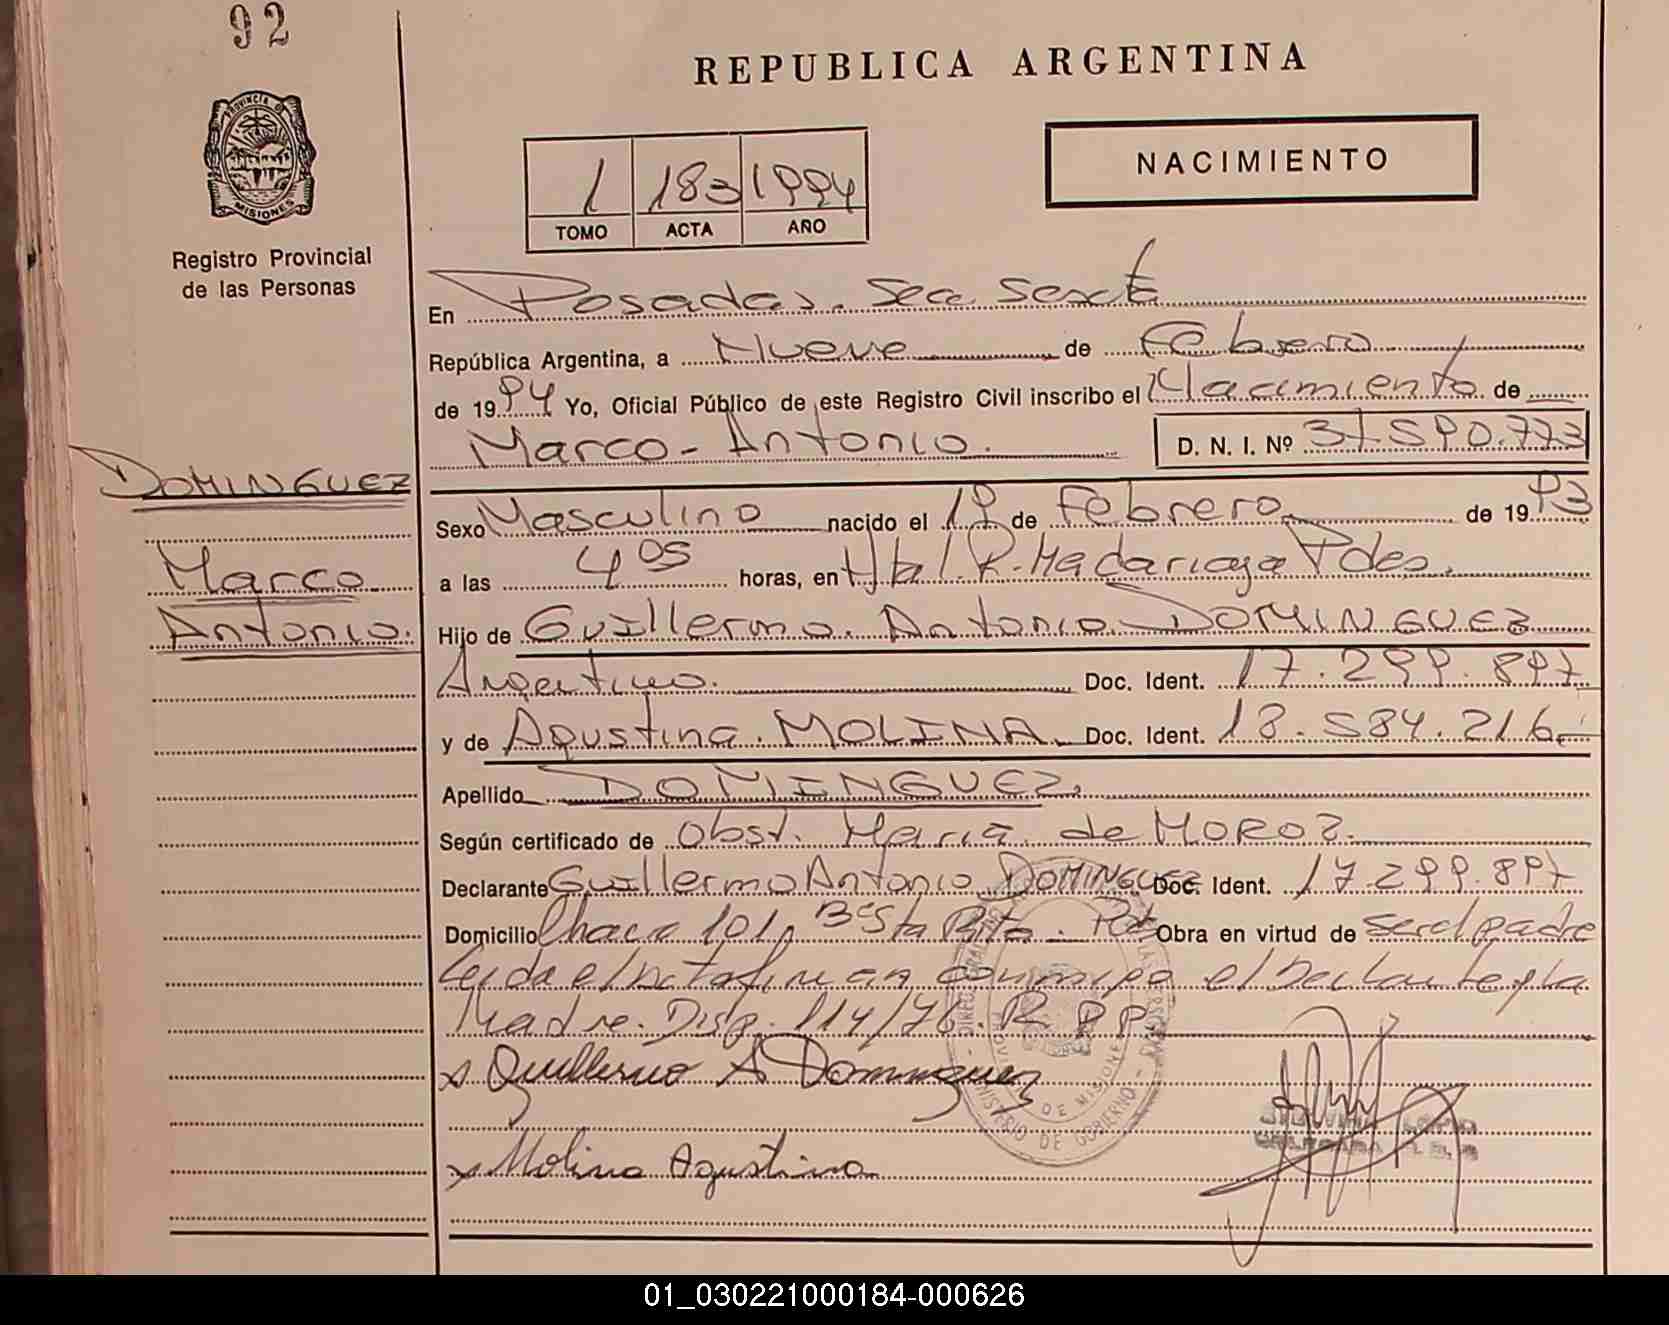 92
REPUBLICA ARGENTINA
PROVINCIA DE
MISIONES
NACIMIENTO
1 183 1994
TOMO ACTA AÑO
Registro Provincial
de las Personas
En Posadas. Sec Sexta
República Argentina, a Nueve de Febrero
de 1994 Yo, Oficial Público de este Registro Civil inscribo el Nacimiento de
Marco-Antonio. D. N. I. Nº 37.590.773
DOMINGUEZ
Marco
Antonio.
Sexo Masculino nacido el 19 de Febrero de 1993
a las 4 05 horas, en Htal. R. Madariaga Pdas.
Hijo de Guillermo. Antonio DOMINGUEZ
Argentino. Doc. Ident. 17.299.897
y de Agustina. MOLINA Doc. Ident. 18.584.216
Apellido DOMINGUEZ
Según certificado de Obst. Maria de MOROZ.
Declarante Guillermo Antonio DOMINGUEZ Doc. Ident. 17.299.897
Domicilio Chaco 101 Bº Sta Rita. Pdas Obra en virtud de ser el padre
Leida el Acta firman conmigo el Declarante y la
Madre. Disp. 114/76. R P P
x Guillermo A Dominguez
x Molina Agustina
MINISTERIO DE GOBIERNO
PROVINCIA DE MISIONES
01_030221000184-000626